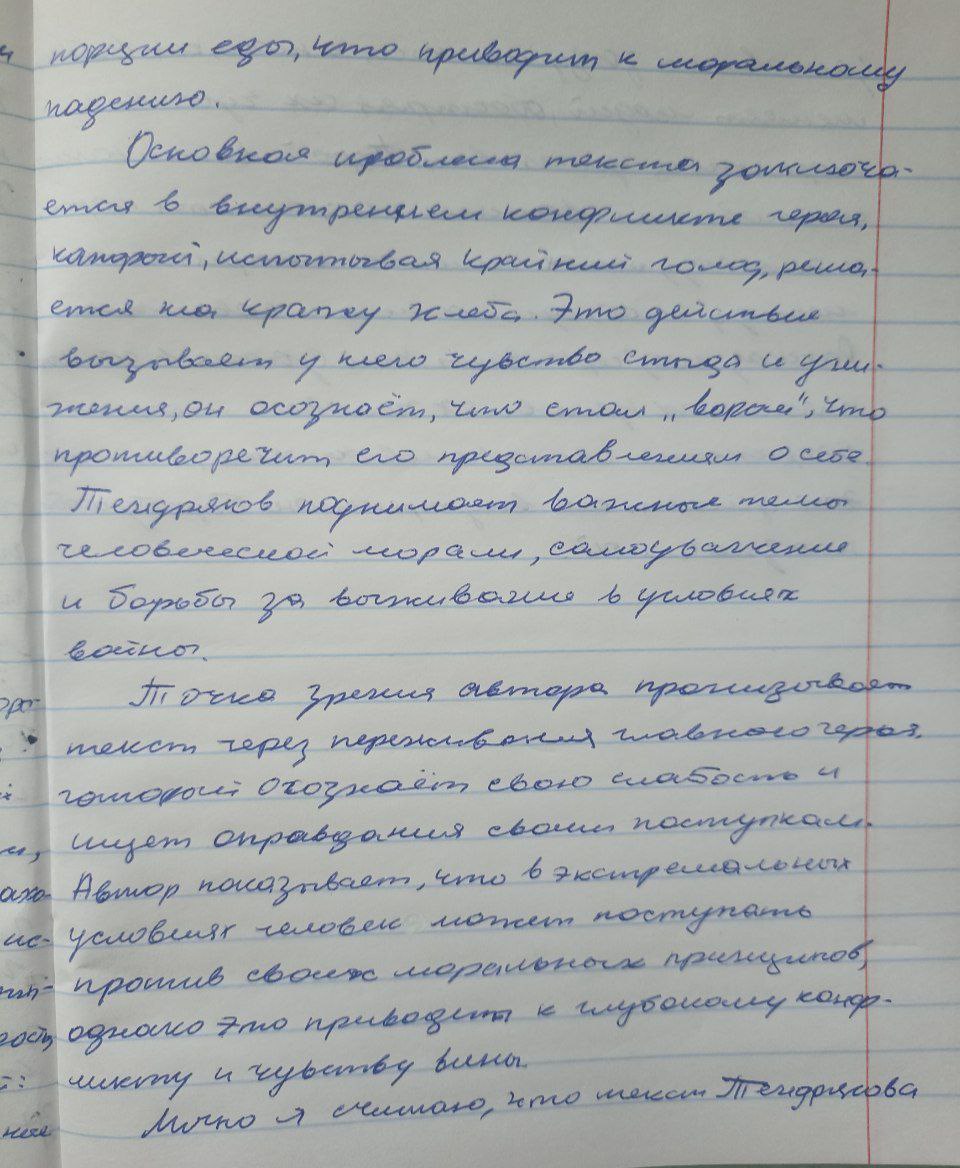 порции еды, что приводит к моральному
падению.
Основная проблема текста заключа-
ется в внутреннем конфликте героя,
который, испытывая крайний голод, реша-
ется на кражу хлеба. Это действие
вызывает у него чувство стыда и уни-
жения, он осознаёт, что стал „вором", что
противоречит его представлениям о себе.
Тендряков поднимает важные темы
человеческой морали, самоуважение
и борьбы за выживание в условиях
войны.
Точка зрения автора пронизывает
текст через переживания главного героя,
который осознаёт свою слабость и
ищет оправдания своим поступкам.
Автор показывает, что в экстремальных
условиях человек может поступать
против своих моральных принципов,
однако это приводит к глубокому конф-
ликту и чувству вины.
Лично я считаю, что текст Тендрякова